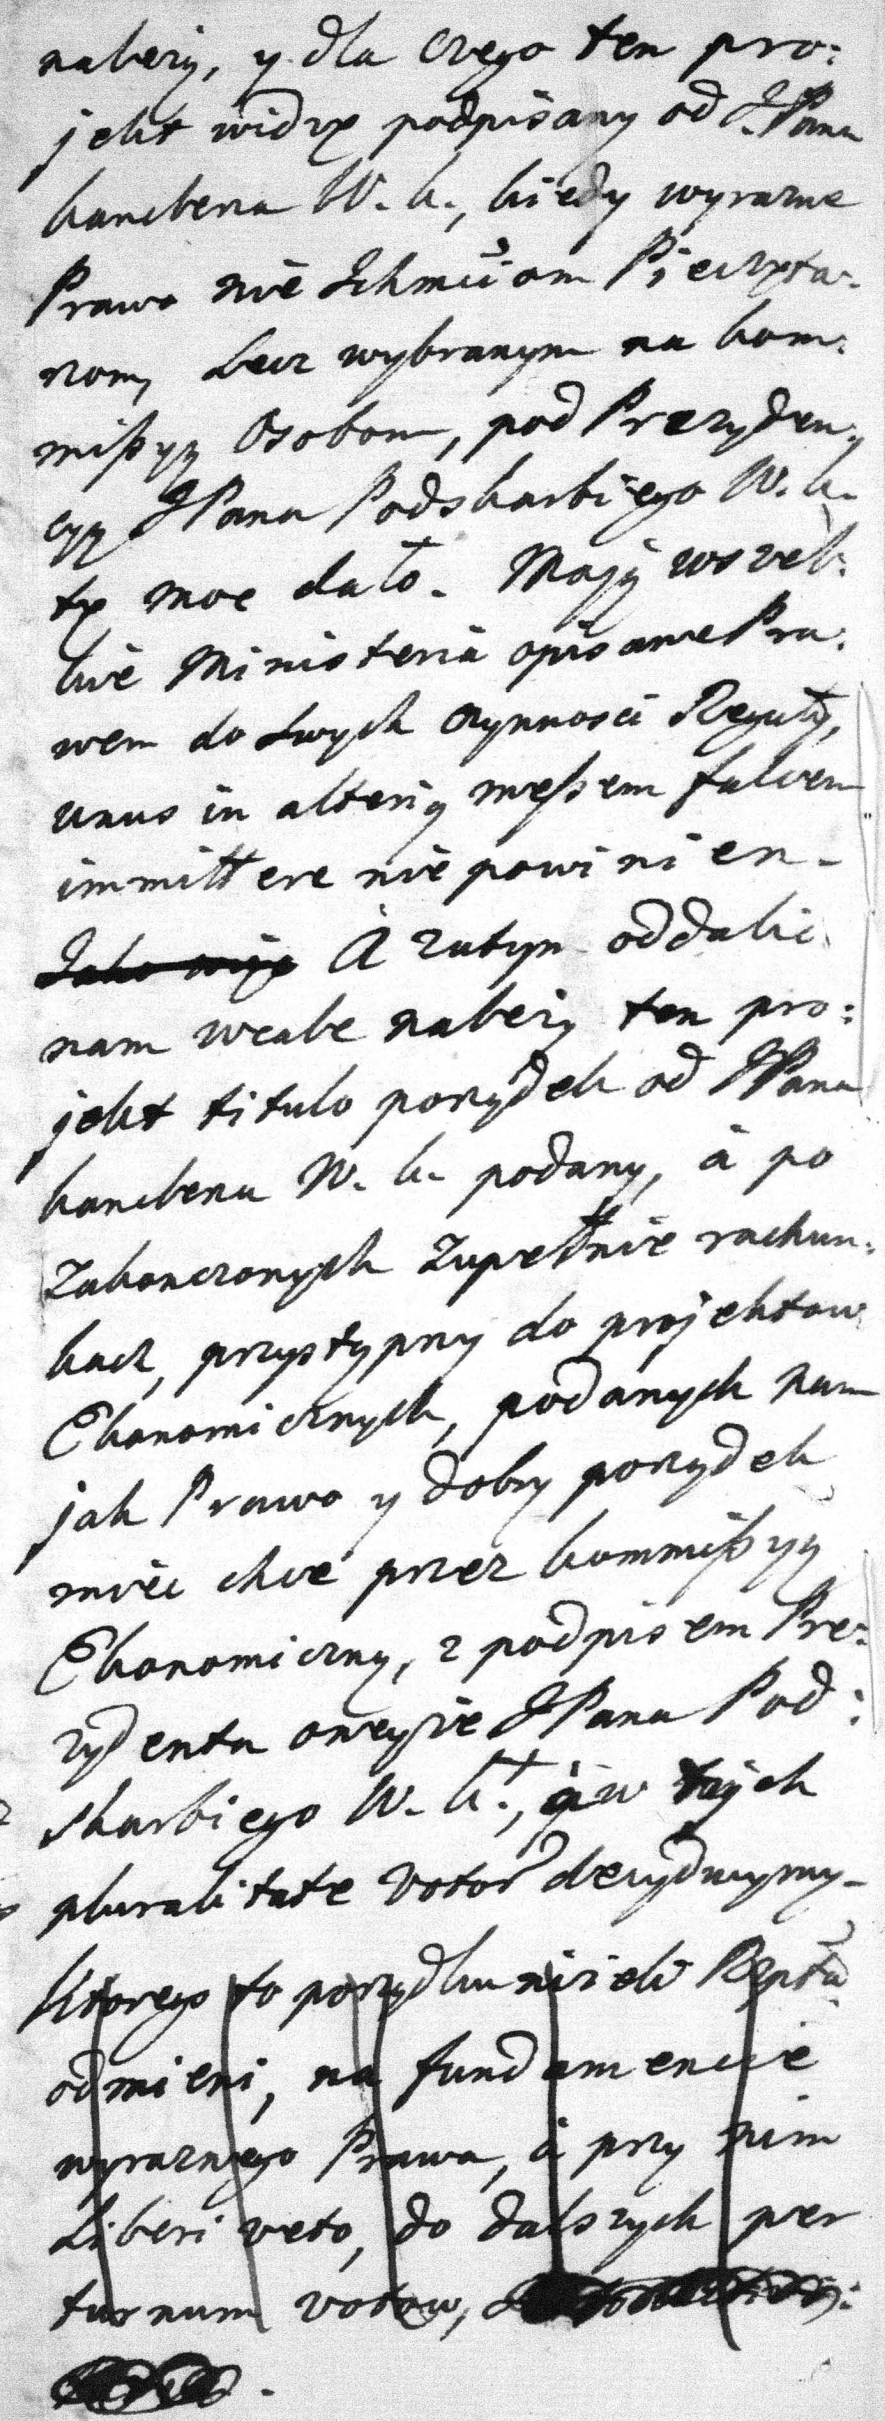 należy, y dla czego ten pro:
jekt widzę podpisany od J. Pana
kanclerza W. k., kiedy wyrazne
Prawo nie Ichmciom Pieczęta:
rzom, Lecz wybranym na kom:
mißyą Osobom, pod Prezyden:
cyą JPana Podskarbiego W. k.
tę moc dało. Mają wszel:
kie Ministeria opisane Pra:
wem do Swych czynnosci Reguły,
unus in alterius meßem falcem
immittere nie powinien.
A zatym oddalic
nam wcale należy ten pro:
jekt titulo porządek od JPana
kanclerza W. k. podany, á po
Zakonczonych Zupełnie rachun:
kach, przystąpmy do projektow
Ekonomicznych, podanych nam
jak Prawo y dobry porządek
miec chce przez kommißyą
Ekonomiczną, z podpisem Pre:
zydenta oneyże JPana Pod:
skarbiego W. k., á w tych
pluralitate Votor decydujmy.
Ktorego to porządku niżeli Rzpta
odmieni, na fundamencie
wyraznego Prawa, á przy nim
Liberi veto, do dalszych per
turnum votow,